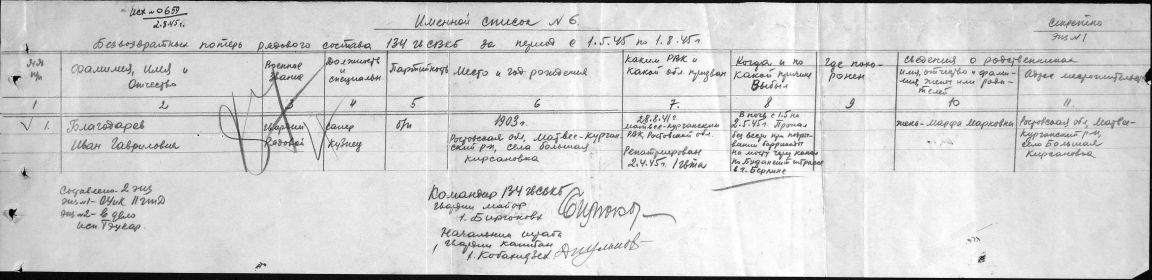 Исх №0659
2.8.45г.
Именной список №6.
Секретно
Экз №1
Безвозвратных потерь рядового состава 134 гвСВКБ за период с 1.5.45 по 1.8.45г.
№№ п/п
Фамилия, Имя и Отчество
Военное Звание
Должность и специальн
Партийность
Место и год рождения
Каким РВК и Какой обл. призван
Когда и по какой причине Выбыл
Где похоронен
Сведения о родственниках
имя, отчество и фамилия жены или родителей
Адрес местожительства
1 2 3 4 5 6 7. 8 9 10 11.
1. Благодарев Иван Гаврилович
гвардии Рядовой
сапер кузнец
б/п
1903г.
Ростовская обл. Матвее-Курганский р-н, села большая Кирсановка
28.8.41г. Матвее-Курганским РВК, Ростовской обл.
Репатриирован 2.4.45г.
В ночь с 1.5 на 2.5.45г. Пропал без вести при подрывании баррикады на мосту через канал
в г. Берлине
жена-Марфа Марковна
Ростовская обл. Матвее-Курганский р-н, село Большая Кирсановка
Составлено 2 экз
экз №2- в дело
Командир 134 гвСВКБ
гвардии майор
Бирюков
Начальник штаба
гвардии капитан